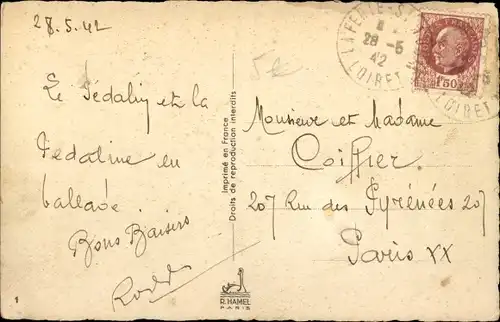 28.5.42
LA FERTE-S
28-5
42
LOIRET
1F50
LOIRET
Le Pédalin et la
Pedaline en
ballade
Bons Baisers
Imprimé en France
Droits de reproduction interdits
Monsieur et Madame
Coiffier
207 Rue des Pyrénées 207
Paris XX
R. HAMEL
PARIS
1